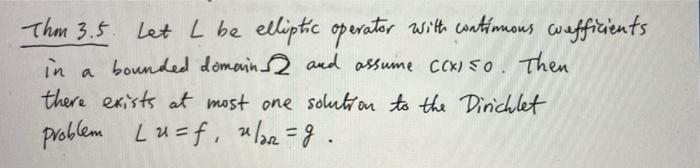 Thm 3.5. Let L be elliptic operator with continuous coefficients
in a bounded domain Ω and assume c(x) ≤ 0. Then
there exists at most one solution to the Dirichlet
problem Lu = f, u|∂Ω = g.